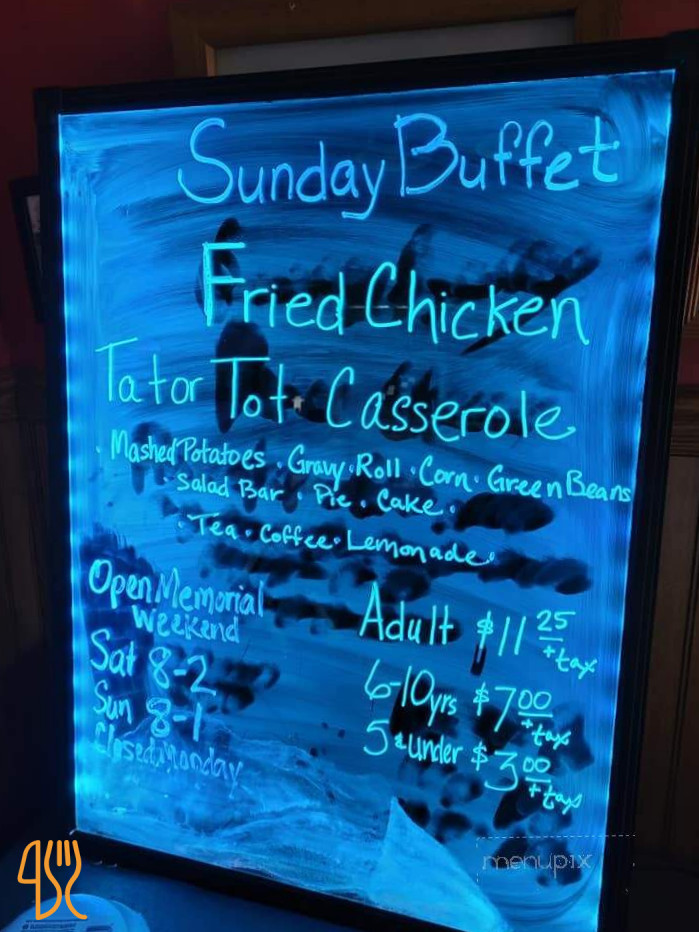 Sunday Buffet
Fried Chicken
Tator Tot Casserole
· Mashed Potatoes · Gravy · Roll · Corn · Green Beans
Salad Bar · Pie · Cake ·
· Tea · Coffee · Lemonade ·
Open Memorial
Weekend
Sat 8-2
Sun 8-1
Closed Monday
Adult $11 25 + tax
6-10yrs $7 00 + tax
5 & under $3 00 + tax
menupix